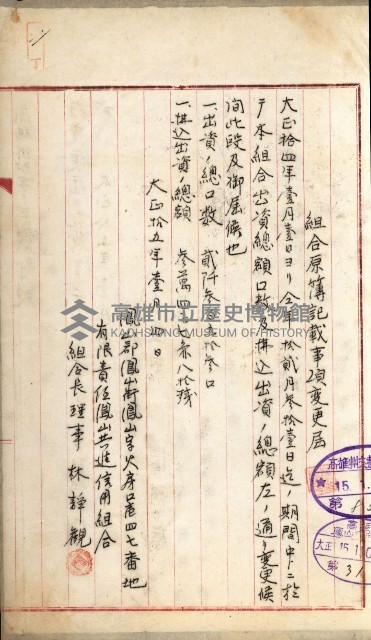 組合原簿記載事項変更届
大正拾四年壹月壹日ヨリ仝年拾貳月参拾壹日迄ノ期間中ニ於
テ本組合出資總額口数及拂込出資ノ總額左ノ通リ変更候
間此段及御届候也
一、出資ノ總口数 貳阡参
一、拂込出資ノ總額 参萬四
大正拾五年壹月 日
鳳山郡鳳山街鳳山字火房口 四七番地
有限責任鳳山共進信用組合
組合長理事 林靜観
高雄市立歷史博物館
KAOHSIUNG MUSEUM OF HISTORY
高雄州
15.1.
第
大正 15.1.10
第